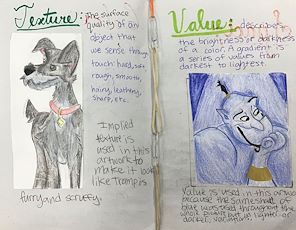 Texture: the surface
quality of an
object that
we sense through
touch: hard, soft
rough, smooth,
hairy, leathery,
sharp, etc.
Implied
texture is
used in this
artwork to
make it look
like Tramp is
furry and scruffy.
Value: describes
the brightness or darkness
of a color. A gradient is
a series of values from
darkest to lightest.
Value is used in this artwork
because the same shade of
blue was used throughout the
whole picture but in lighter or
darker variation.